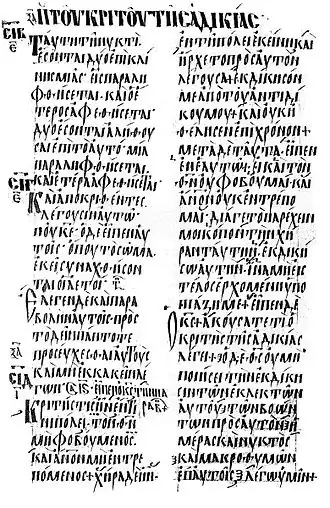 ΤΟΥΚΡΙΤΟΥΤΗΣΑΔΙΚΙΑΣ
ΤΑΥΤΗΤΗΝΥΚΤΙ
ΕΣΟΝΤΑΙΔΥΟΕΠΙΚΛΙ
ΝΗΣΜΙΑΣ·ΕΙΣΠΑΡΑΛΗ
ΦΘΗΣΕΤΑΙ·ΚΑΙΟΕ
ΤΕΡΟΣΑΦΕΘΗΣΕΤΑΙ·
ΔΥΟΕΣΟΝΤΑΙΑΛΗΘΟΥ
ΣΑΙΕΠΙΤΟΑΥΤΟ·ΜΙΑ
ΠΑΡΑΛΗΦΘΗΣΕΤΑΙ·
ΚΑΙΗΕΤΕΡΑΑΦΕΘΗΣΕΤΑΙ
ΚΑΙΑΠΟΚΡΙΘΕΝΤΕΣ
ΛΕΓΟΥΣΙΝΑΥΤΩ
ΠΟΥΚΕ·ΟΔΕΕΙΠΕΝΑΥ
ΤΟΙΣ·ΟΠΟΥΤΟΣΩΜΑ·
ΕΚΕΙΣΥΝΑΧΘΗΣΟΝ
ΤΑΙΟΙΑΕΤΟΙ
ΕΛΕΓΕΝΔΕΚΑΙΠΑΡΑ
ΒΟΛΗΝΑΥΤΟΙΣ·ΠΡΟΣ
ΤΟΔΕΙΝΠΑΝΤΟΤΕ
ΠΡΟΣΕΥΧΕΣΘΑΙΑΥΤΟΥΣ
ΚΑΙΜΗΕΚΚΑΚΕΙΝΛΕ
ΓΩΝ
ΚΡΙΤΗΣΤΙΣΗΝΕΝΤΙ
ΝΙΠΟΛΕΙ·ΤΟΝΘΝ
ΜΗΦΟΒΟΥΜΕΝΟΣ·
ΚΑΙΑΝΟΝΜΗΕΝΤΡΕ
ΠΟΜΕΝΟΣ+ΧΗΡΑΔΕΗΝ·
ΕΝΤΗΠΟΛΕΙΕΚΕΙΝΗΚΑΙ
ΗΡΧΕΤΟΠΡΟΣΑΥΤΟΝ
ΛΕΓΟΥΣΑ+ΕΚΔΙΚΗΣΟΝ
ΜΕΑΠΟΤΟΥΑΝΤΙΔΙ
ΚΟΥΜΟΥ+ΚΑΙΟΥΚΗ
ΘΕΛΗΣΕΝΕΠΙΧΡΟΝΟΝ+
ΜΕΤΑΔΕΤΑΥΤΑ·ΕΙΠΕΝ
ΕΝΕΑΥΤΩ+ΕΙΚΑΙΤΟΝ
ΘΝΟΥΦΟΒΟΥΜΑΙΚΑΙ
ΑΝΟΝΟΥΚΕΝΤΡΕΠΟ
ΜΑΙ·ΔΙΑΓΕΤΟΠΑΡΕΧΕΙΝ
ΜΟΙΚΟΠΟΝΤΗΝΧΗ
ΡΑΝΤΑΥΤΗΝ·ΕΚΔΙΚΗ
ΣΩΑΥΤΗΝ·ΙΝΑΜΗΕΙΣ
ΤΕΛΟΣΕΡΧΟΜΕΝΗΥΠΟ
ΠΙΑΖΗΜΕ+ΕΙΠΕΝΔΕ
ΟΚΣ+ΑΚΟΥΣΑΤΕΤΙΟ
ΚΡΙΤΗΣΤΗΣΑΔΙΚΙΑΣ
ΛΕΓΕΙ+ΟΔΕΘΣΟΥΜΗ
ΠΟΙΗΣΕΙΤΗΝΕΚΔΙΚΗ
ΣΙΝΤΩΝΕΚΛΕΚΤΩΝ
ΑΥΤΟΥΤΩΝΒΟΩΝ
ΤΩΝΠΡΟΣΑΥΤΟΝΗ
ΜΕΡΑΣΚΑΙΝΥΚΤΟΣ
ΚΑΙΜΑΚΡΟΘΥΜΩΝ
ΕΠΑΥΤΟΙΣΛΕΓΩΥΜΙΝ+